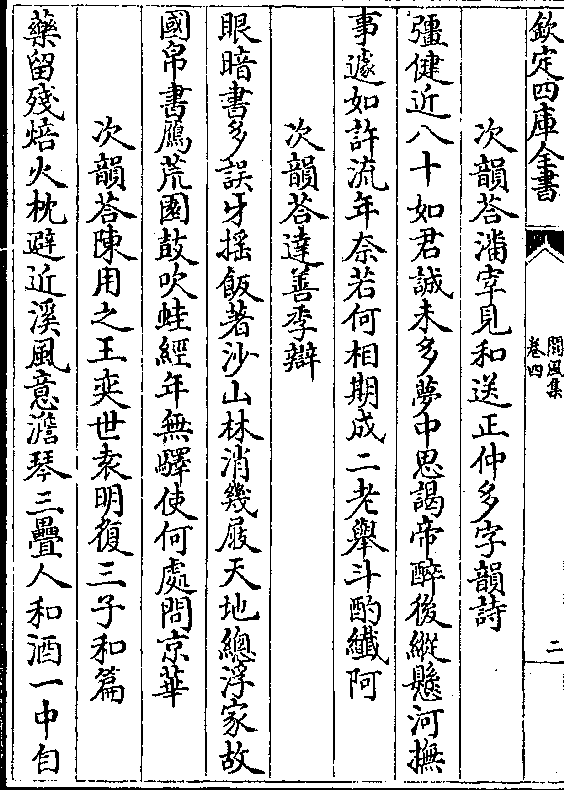 欽定四庫全書
閬風集
卷四
二
次韻荅潘宰見和送正仲多字韻詩
彊健近八十如君誠未多夢中思謁帝醉後縱懸河撫
事遽如許流年奈若何相期成二老舉斗酌纖阿
次韻荅達善季辯
眼暗書多誤牙揺飯著沙山林消幾屐天地總浮家故
國帛書鴈荒園鼓吹蛙經年無驛使何處問京華
次韻荅陳用之王奕世袁明復三子和篇
藥留殘焙火枕避近溪風意澹琴三疊人和酒一中自